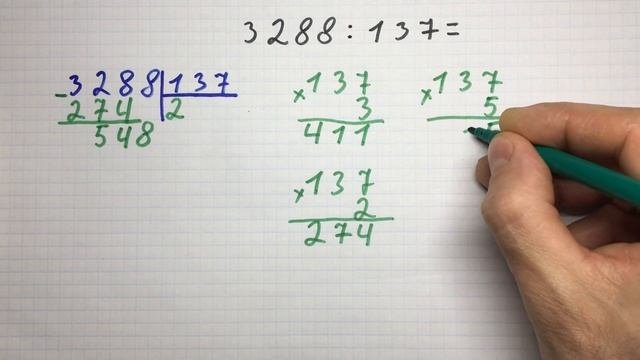 3288:137=
3288 137
- 274 2
548
137
× 3
411
137
× 5
5
137
× 2
274